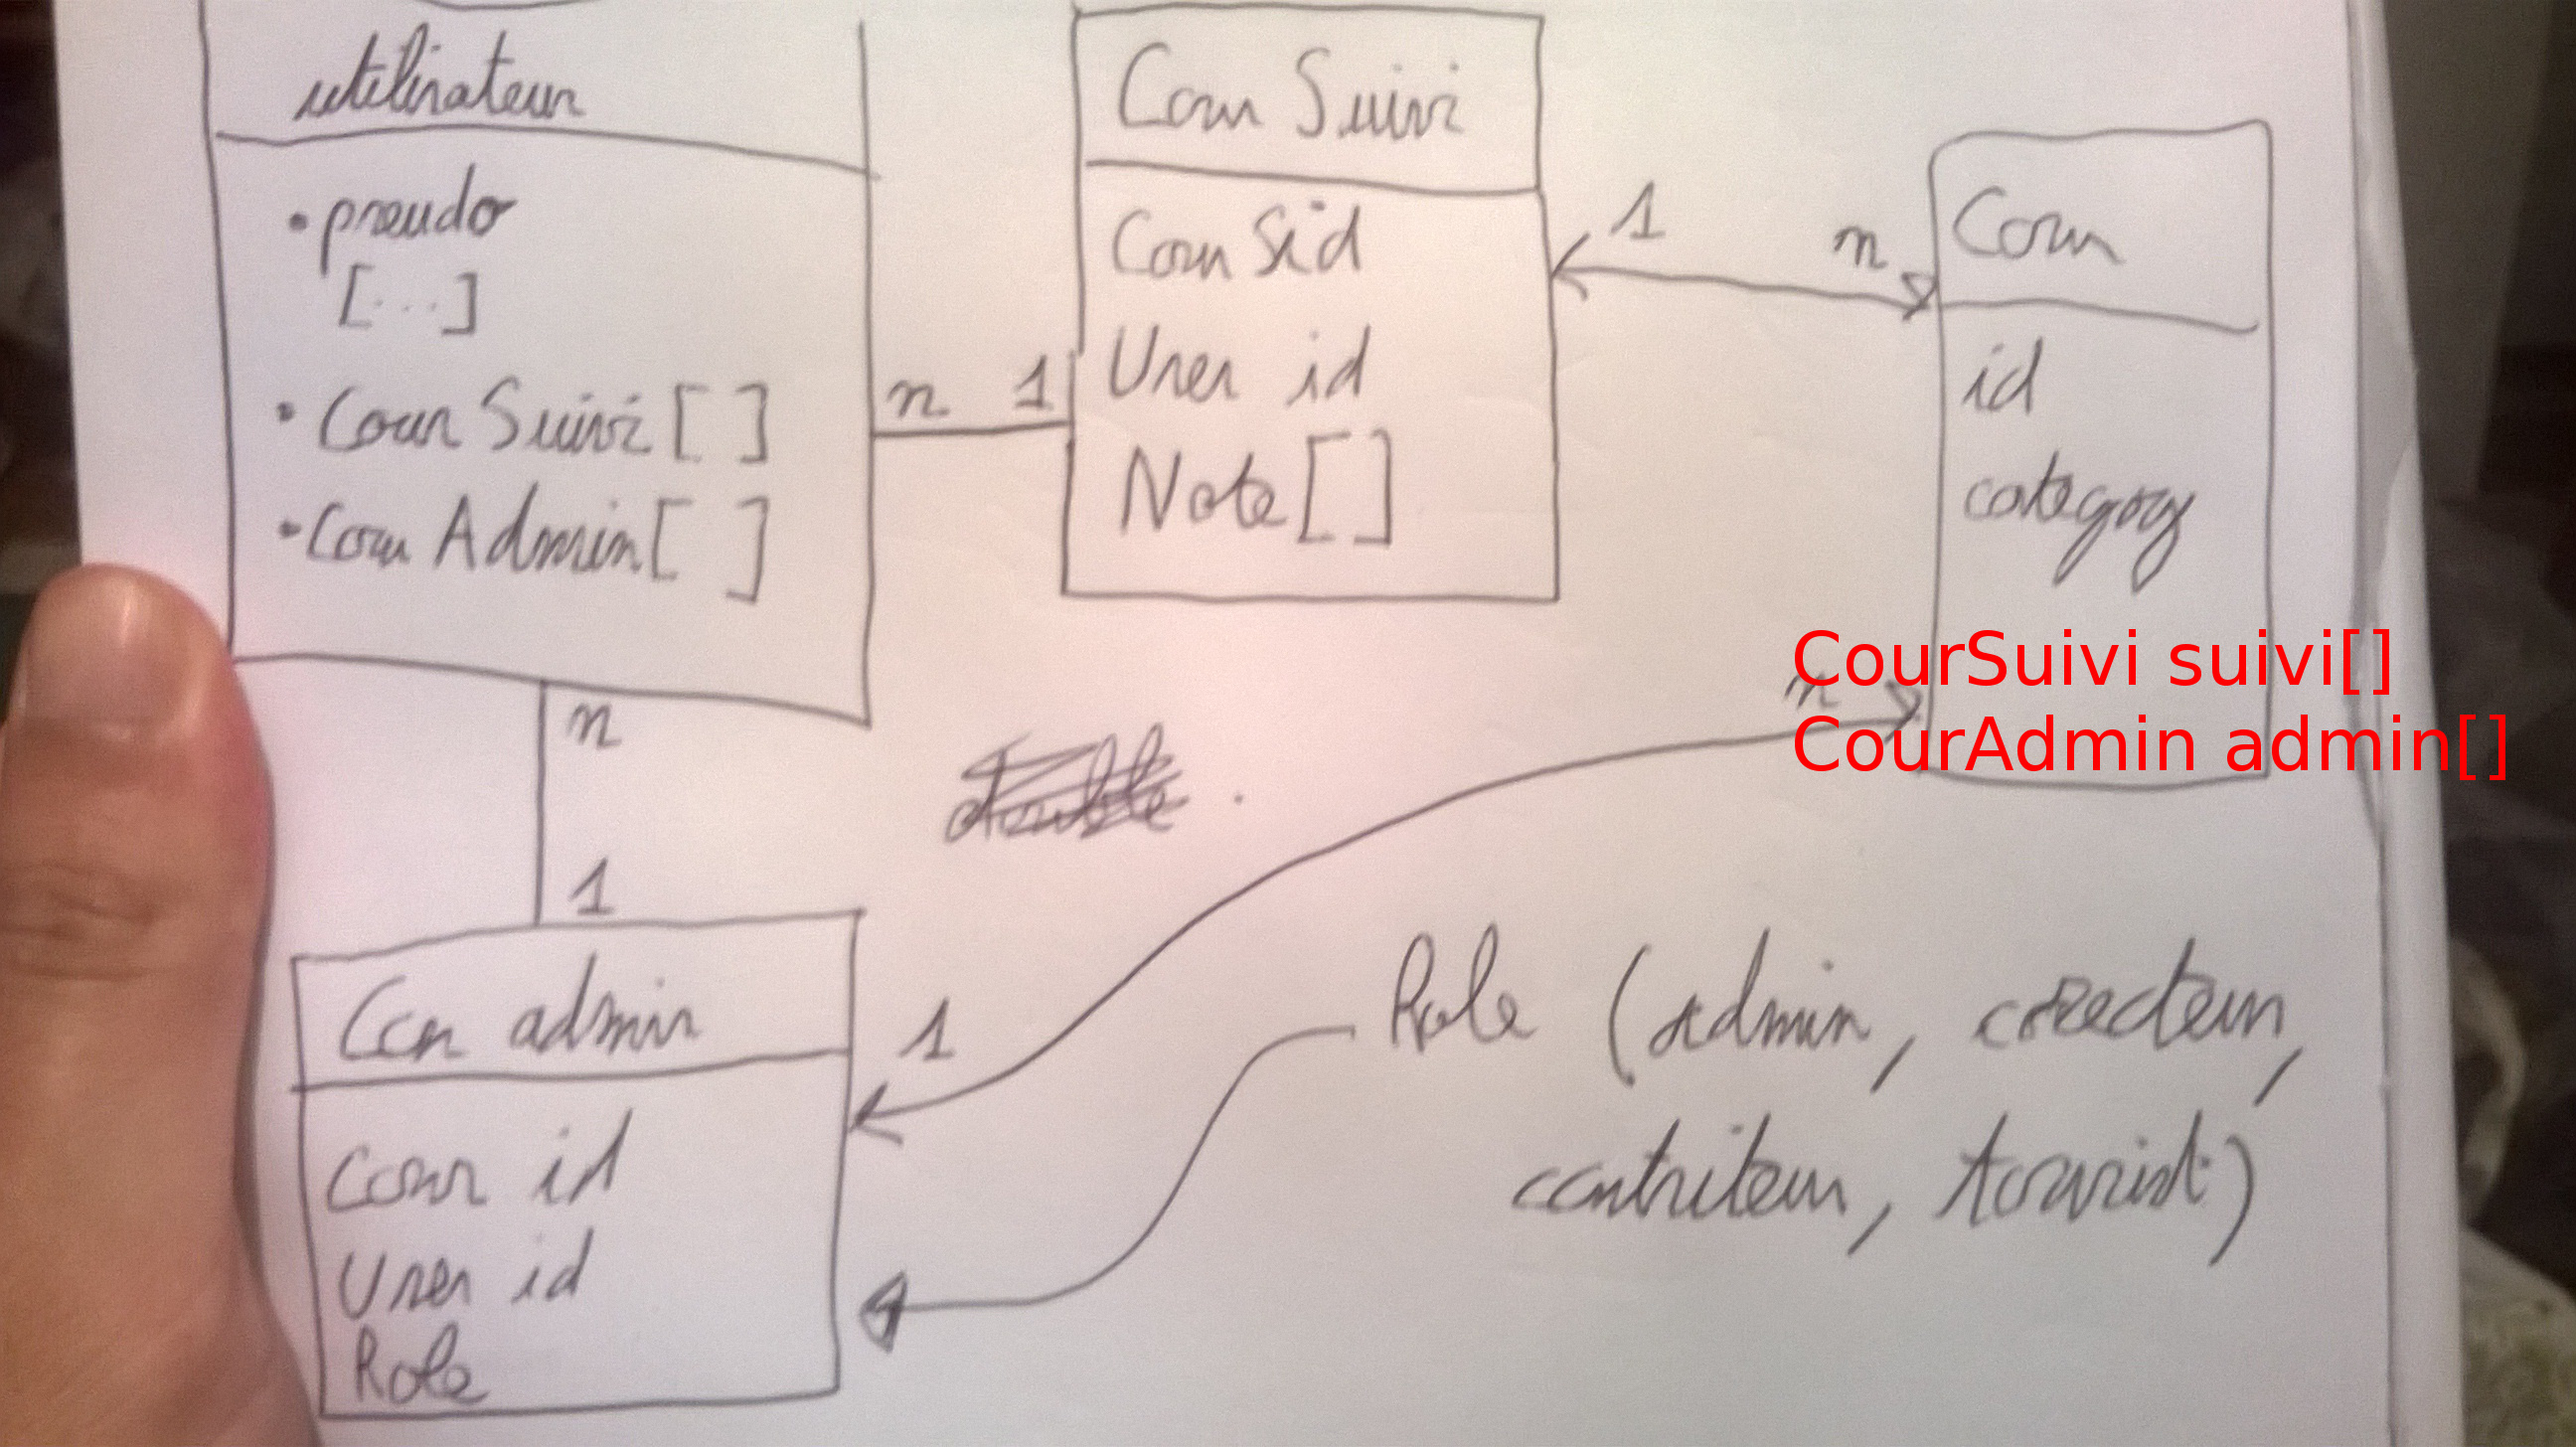 utilisateur
• pseudo
[...]
• Cour Suivi [ ]
• Cour Admin [ ]
n 1
Cour Suivi
Cour Sid
User id
Note []
1 n
Cour
id
category
CourSuivi suivi[]
CourAdmin admin[]
n
n
1
double
Cour admin
Cour id
User id
Role
1
Role (admin, correcteur,
contributeur, touriste)